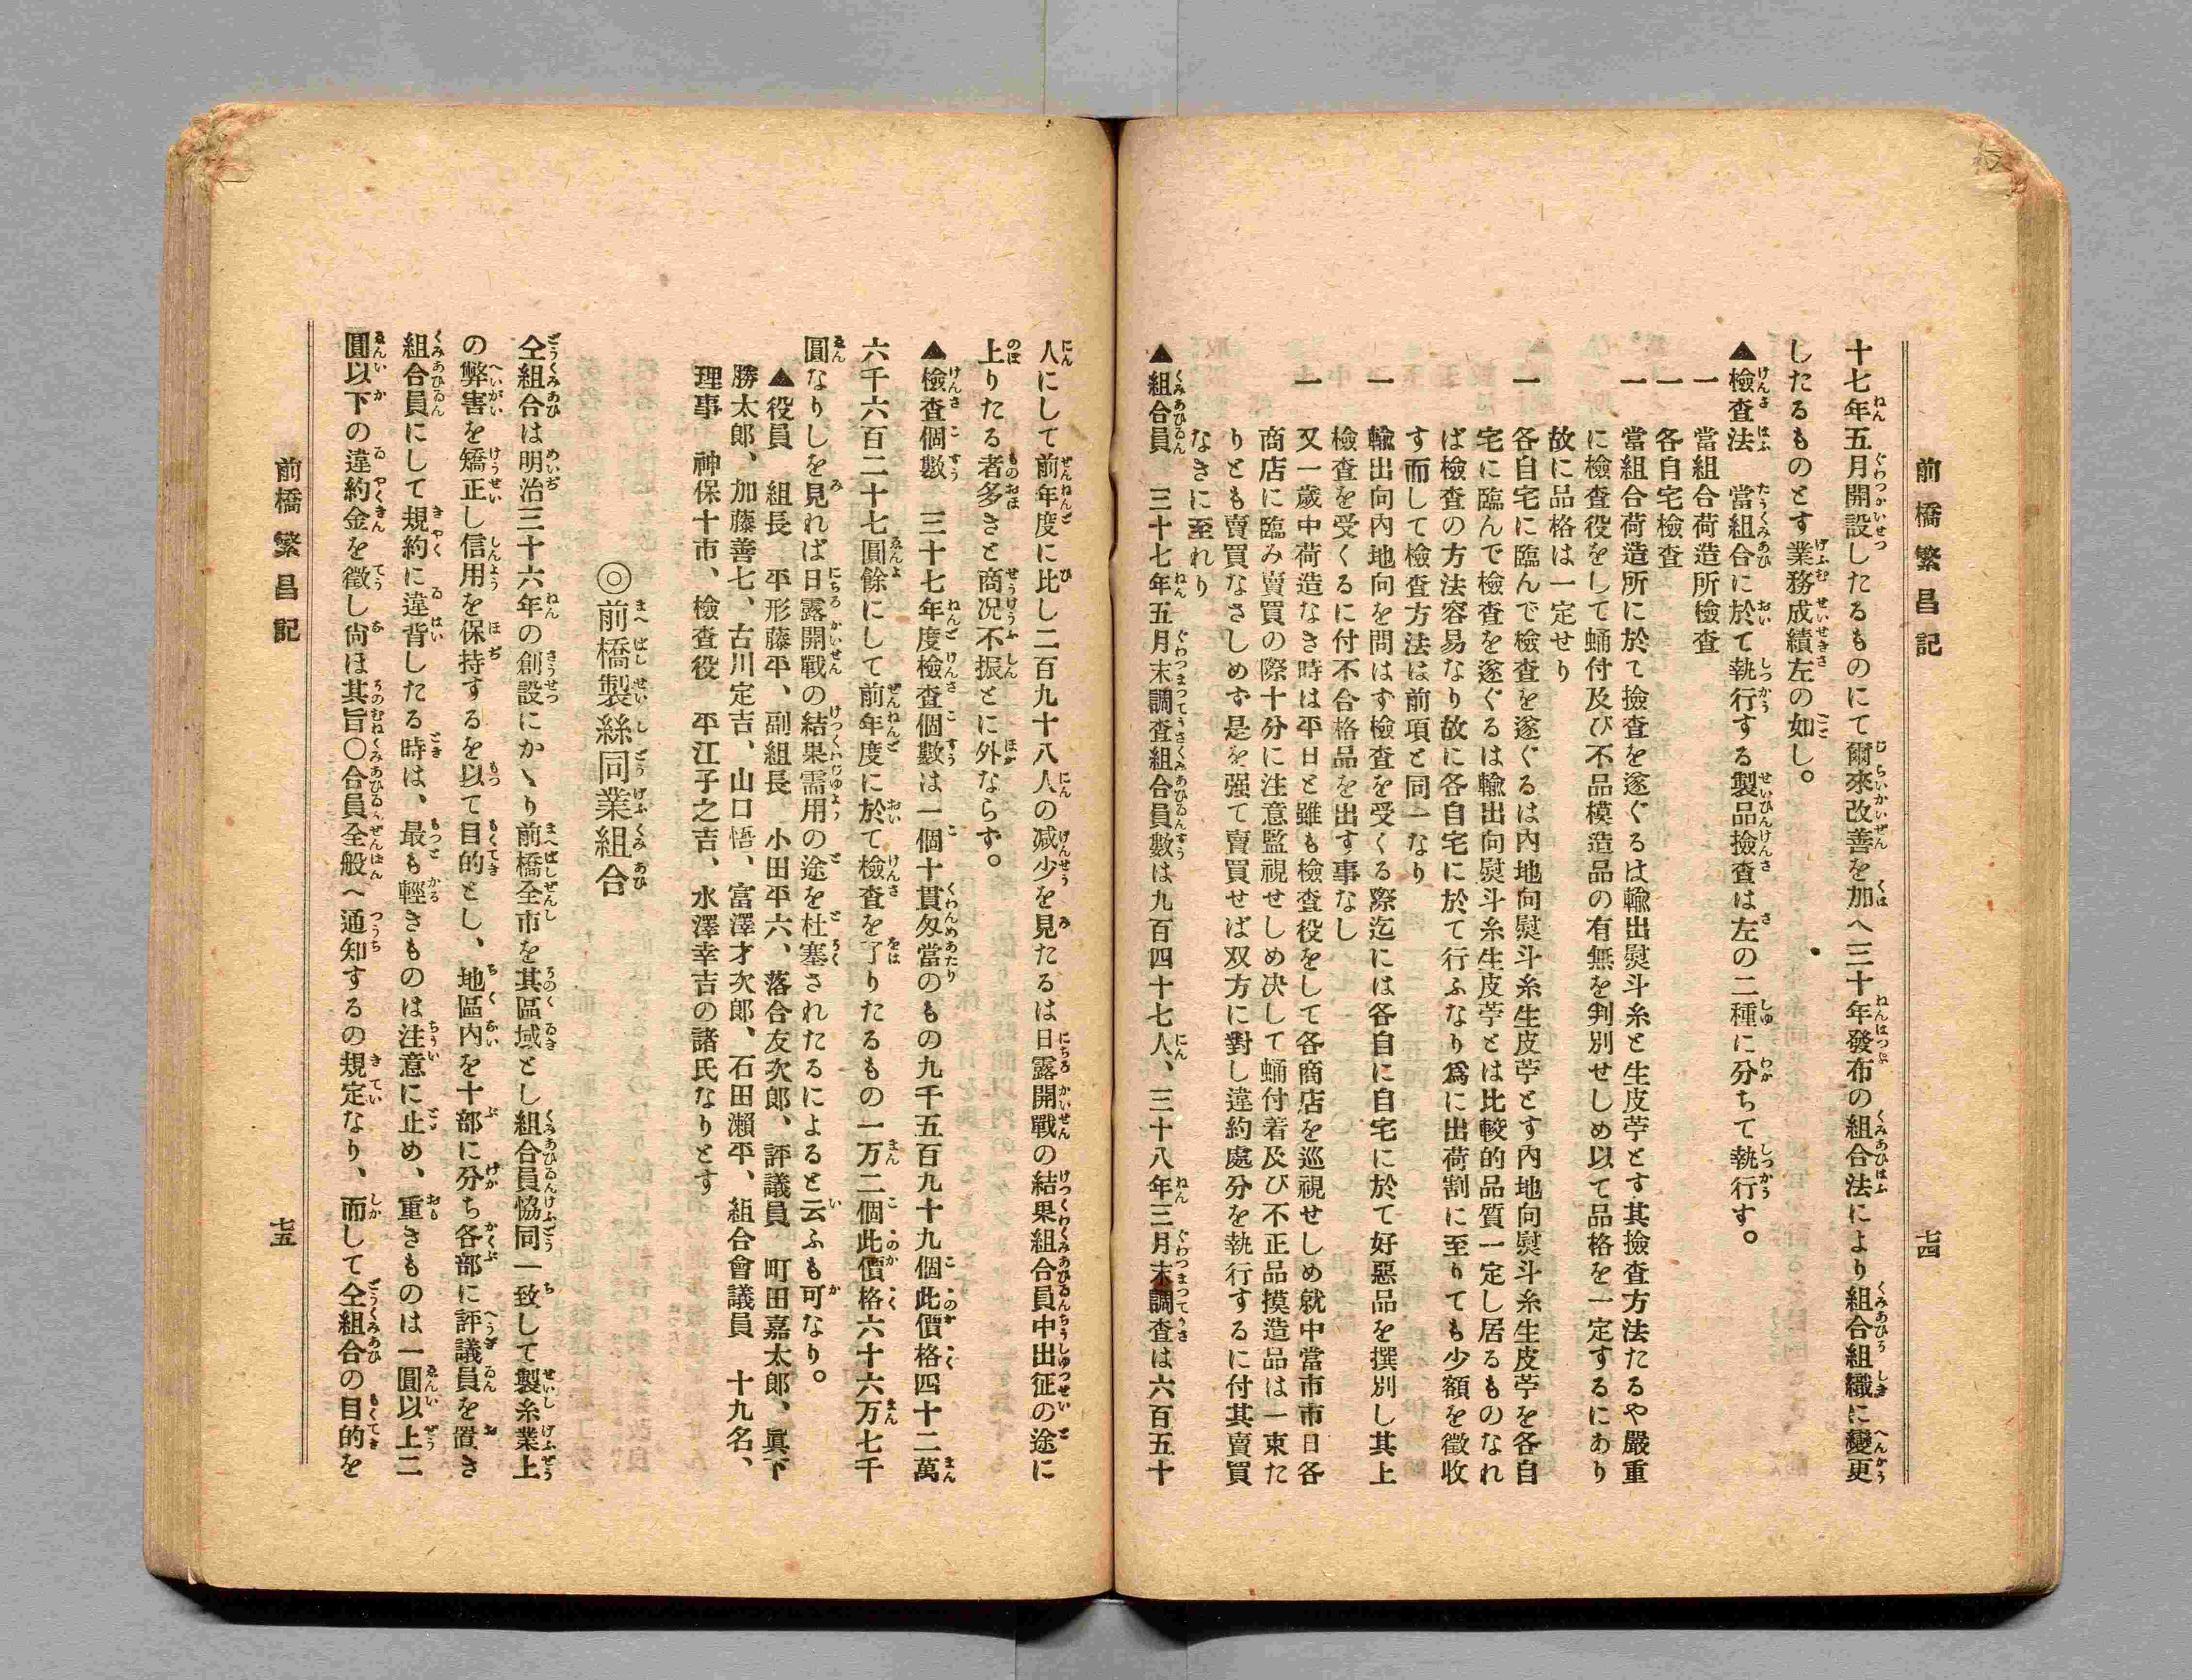 前橋繁昌記
七四
十七年五月開設したるものにて爾來改善を加へ三十年發布の組合法により組合組織に變更
したるものとす業務成績左の如し。
▲檢査法　當組合に於て執行する製品撿査は左の二種に分ちて執行す。
一　當組合荷造所檢査
一　各自宅檢査
一　當組合荷造所に於て撿査を遂ぐるは輸出熨斗糸と生皮苧とす其撿査方法たるや嚴重
に檢査役をして蛹付及び不品模造品の有無を判別せしめ以て品格を一定するにあり
故に品格は一定せり
一　各自宅に臨んで檢査を遂ぐるは内地向熨斗糸生皮苧とす内地向熨斗糸生皮苧を各自
宅に臨んで檢査を遂ぐるは輸出向熨斗糸生皮苧とは比較的品質一定し居るものなれ
ば檢査の方法容易なり故に各自宅に於て行ふなり爲に出荷割に至りても少額を徵收
す而して檢査方法は前項と同一なり
一　輸出向内地向を問はず檢査を受くる際迄には各自に自宅に於て好惡品を撰別し其上
檢査を受くるに付不合格品を出す事なし
一　又一歲中荷造なき時は平日と雖も檢査役をして各商店を巡視せしめ就中當市市日各
商店に臨み賣買の際十分に注意監視せしめ決して蛹付着及び不正品摸造品は一束た
りとも賣買なさしめず是を强て賣買せば双方に對し違約處分を執行するに付其賣買
なきに至れり
▲組合員　三十七年五月末調査組合員數は九百四十七人、三十八年三月末調査は六百五十
人にして前年度に比し二百九十八人の减少を見たるは日露開戰の結果組合員中出征の途に
上りたる者多きと商况不振とに外ならず。
▲檢査個數　三十七年度檢査個數は一個十貫匁當のもの九千五百九十九個此價格四十二萬
六千六百二十七圓餘にして前年度に於て檢査を了りたるもの一万二個此價格六十六万七千
圓なりしを見れば日露開戰の結果需用の途を杜塞されたるによると云ふも可なり。
▲役員　組長　平形藤平、副組長　小田平六、落合友次郎、評議員　町田嘉太郎、眞下
勝太郎、加藤善七、古川定吉、山口悟、富澤才次郎、石田瀨平、組合會議員　十九名、
理事　神保十市、檢査役　平江子之吉、水澤幸吉の諸氏なりとす
◎前橋製絲同業組合
仝組合は明治三十六年の創設にかゝり前橋全市を其區域とし組合員恊同一致して製糸業上
の弊害を矯正し信用を保持するを以て目的とし、地區内を十部に分ち各部に評議員を置き
組合員にして規約に違背したる時は、最も輕きものは注意に止め、重きものは一圓以上二
圓以下の違約金を徵し尙ほ其旨〇合員全般へ通知するの規定なり、而して仝組合の目的を
前橋繁昌記
七五